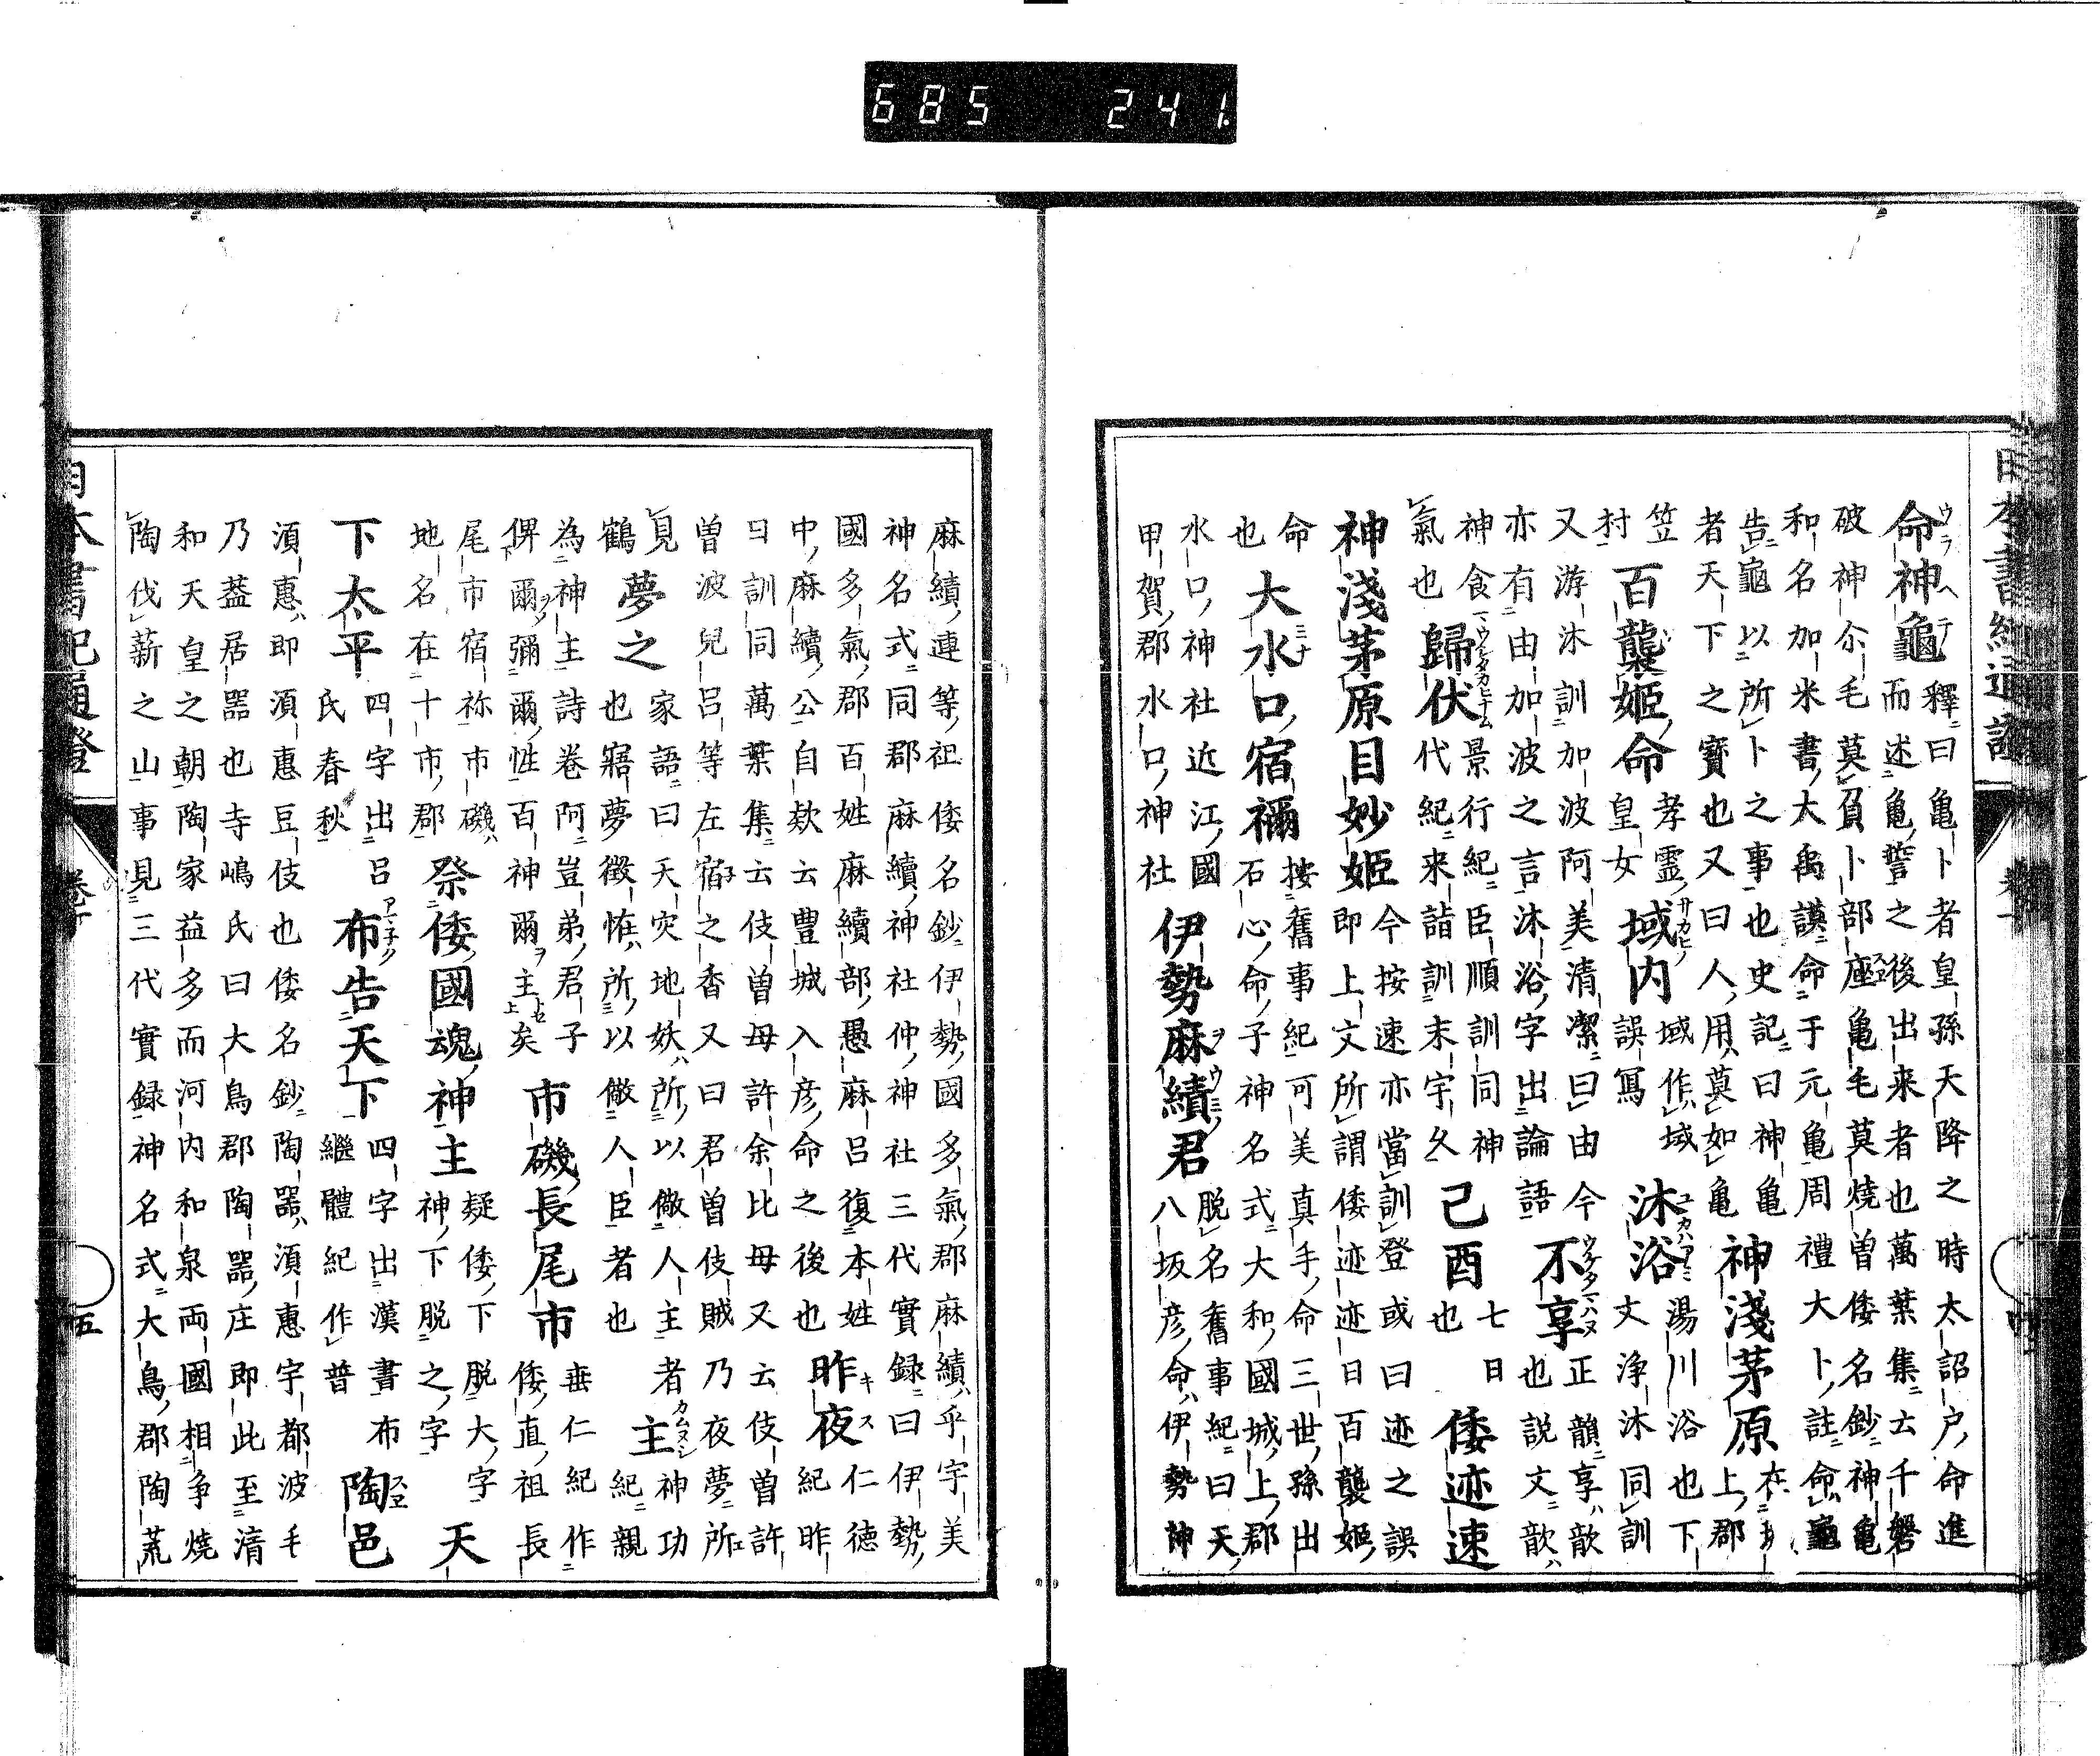 命神龜 釋曰亀卜者皇孫天降之時太詔戸命進
而述亀誓之後出来者也萬葉集云千磐
破神尒毛莫負卜部座亀毛莫焼曽倭名鈔神亀
和名加米書大禹謨命于元亀周禮大卜註命龜
告龜以所卜之事也史記曰神亀
者天下之寶也又曰人用莫如亀 神淺茅原 在
上郡
笠
村 百襲姫命 孝霊
皇女 域内 域作域
誤寫 沐浴 湯川浴也下
文浄沐同訓
又游沐訓加波阿美清潔曰由
亦有由加波之言沐浴字出論語 今 不享 正韻享歆
也説文歆
神食
氣也 歸伏 景行紀臣順訓同神
代紀来詣訓末宇久 己酉 七日
也 倭迹速
神淺茅原目妙姫 今按速亦當訓登或曰迹之誤
即上文所謂倭迹迹日百襲姫
命
也 大水口宿禰 按舊事紀可美真手命三世孫出
石心命子神名式大和國城上郡
水口神社近江國
甲賀郡水口神社 伊勢麻績君 脱名舊事紀曰天
八坂彦命伊勢神
麻績連等祖倭名鈔伊勢國多氣郡麻績乎宇美
神名式同郡麻續神社仲神社三代實録曰伊勢
國多氣郡百姓麻續部愚麻呂復本姓 仁徳
中麻續公自欵云豊城入彦命之後也 昨夜 紀昨
曰訓同萬葉集云伎曽母許余比母又云伎曽許
曽波兒呂等左宿之香又曰君曽伎賊乃夜夢所
見
鶴 夢之 家語曰天灾地妖所以儆人主者
也寤夢徵恠所以儆人臣者也 主 神功
紀親
為神主詩卷阿豈弟君子
俾爾彌爾性百神爾主矣 市磯長尾市 垂仁紀作
倭直祖長
尾市宿祢市磯
地名在十市郡 祭倭國魂神主 疑倭下脱大字
神下脱之字 天
下太平 四字出呂
氏春秋 布告天下 四字出漢書
繼體紀作普布 陶邑
湏惠即湏惠豆伎也倭名鈔陶器湏惠宇都波毛
乃葢居器也寺嶋氏曰大鳥郡陶器庄即此至清
和天皇之朝陶家益多而河内和泉両國相争焼
陶伐薪之山事見三代實録神名式大鳥郡陶荒
五